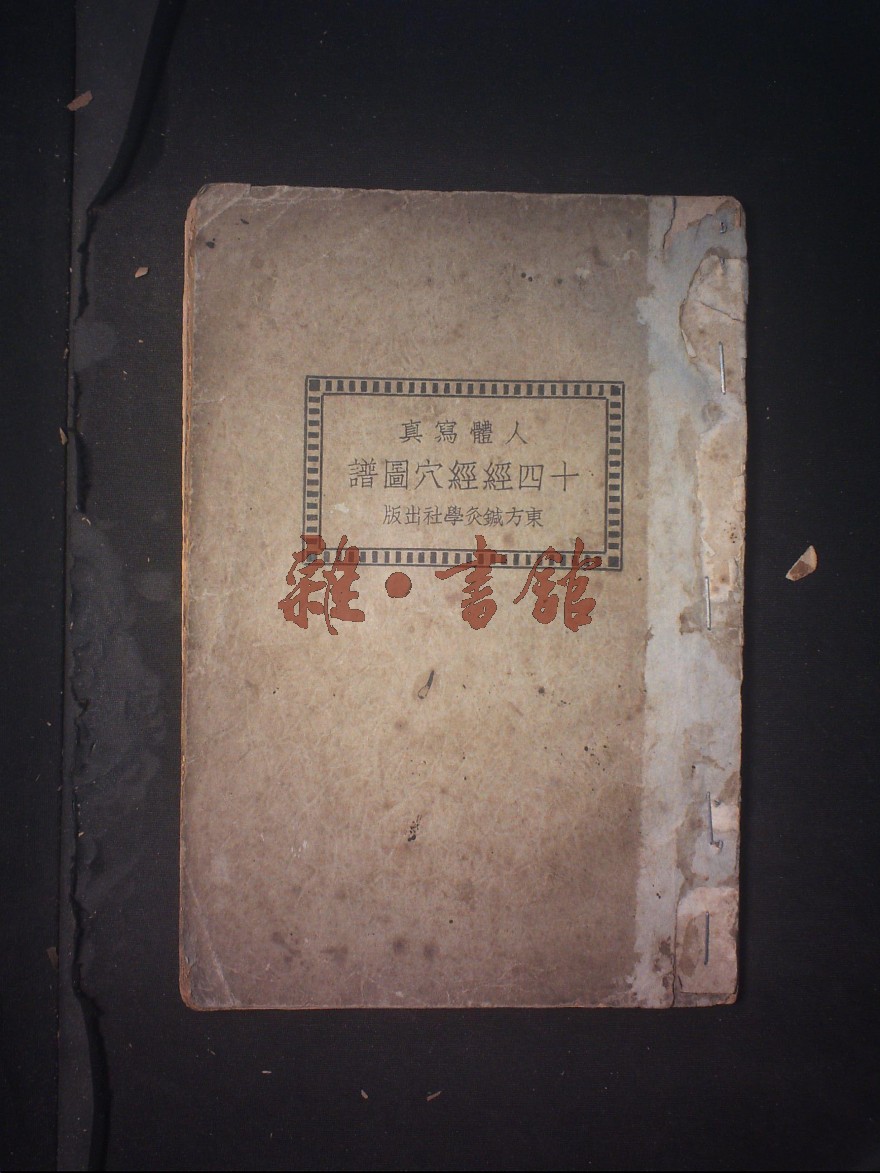 人體寫真
十四經經穴圖譜
東方鍼灸學社出版
雜·書館